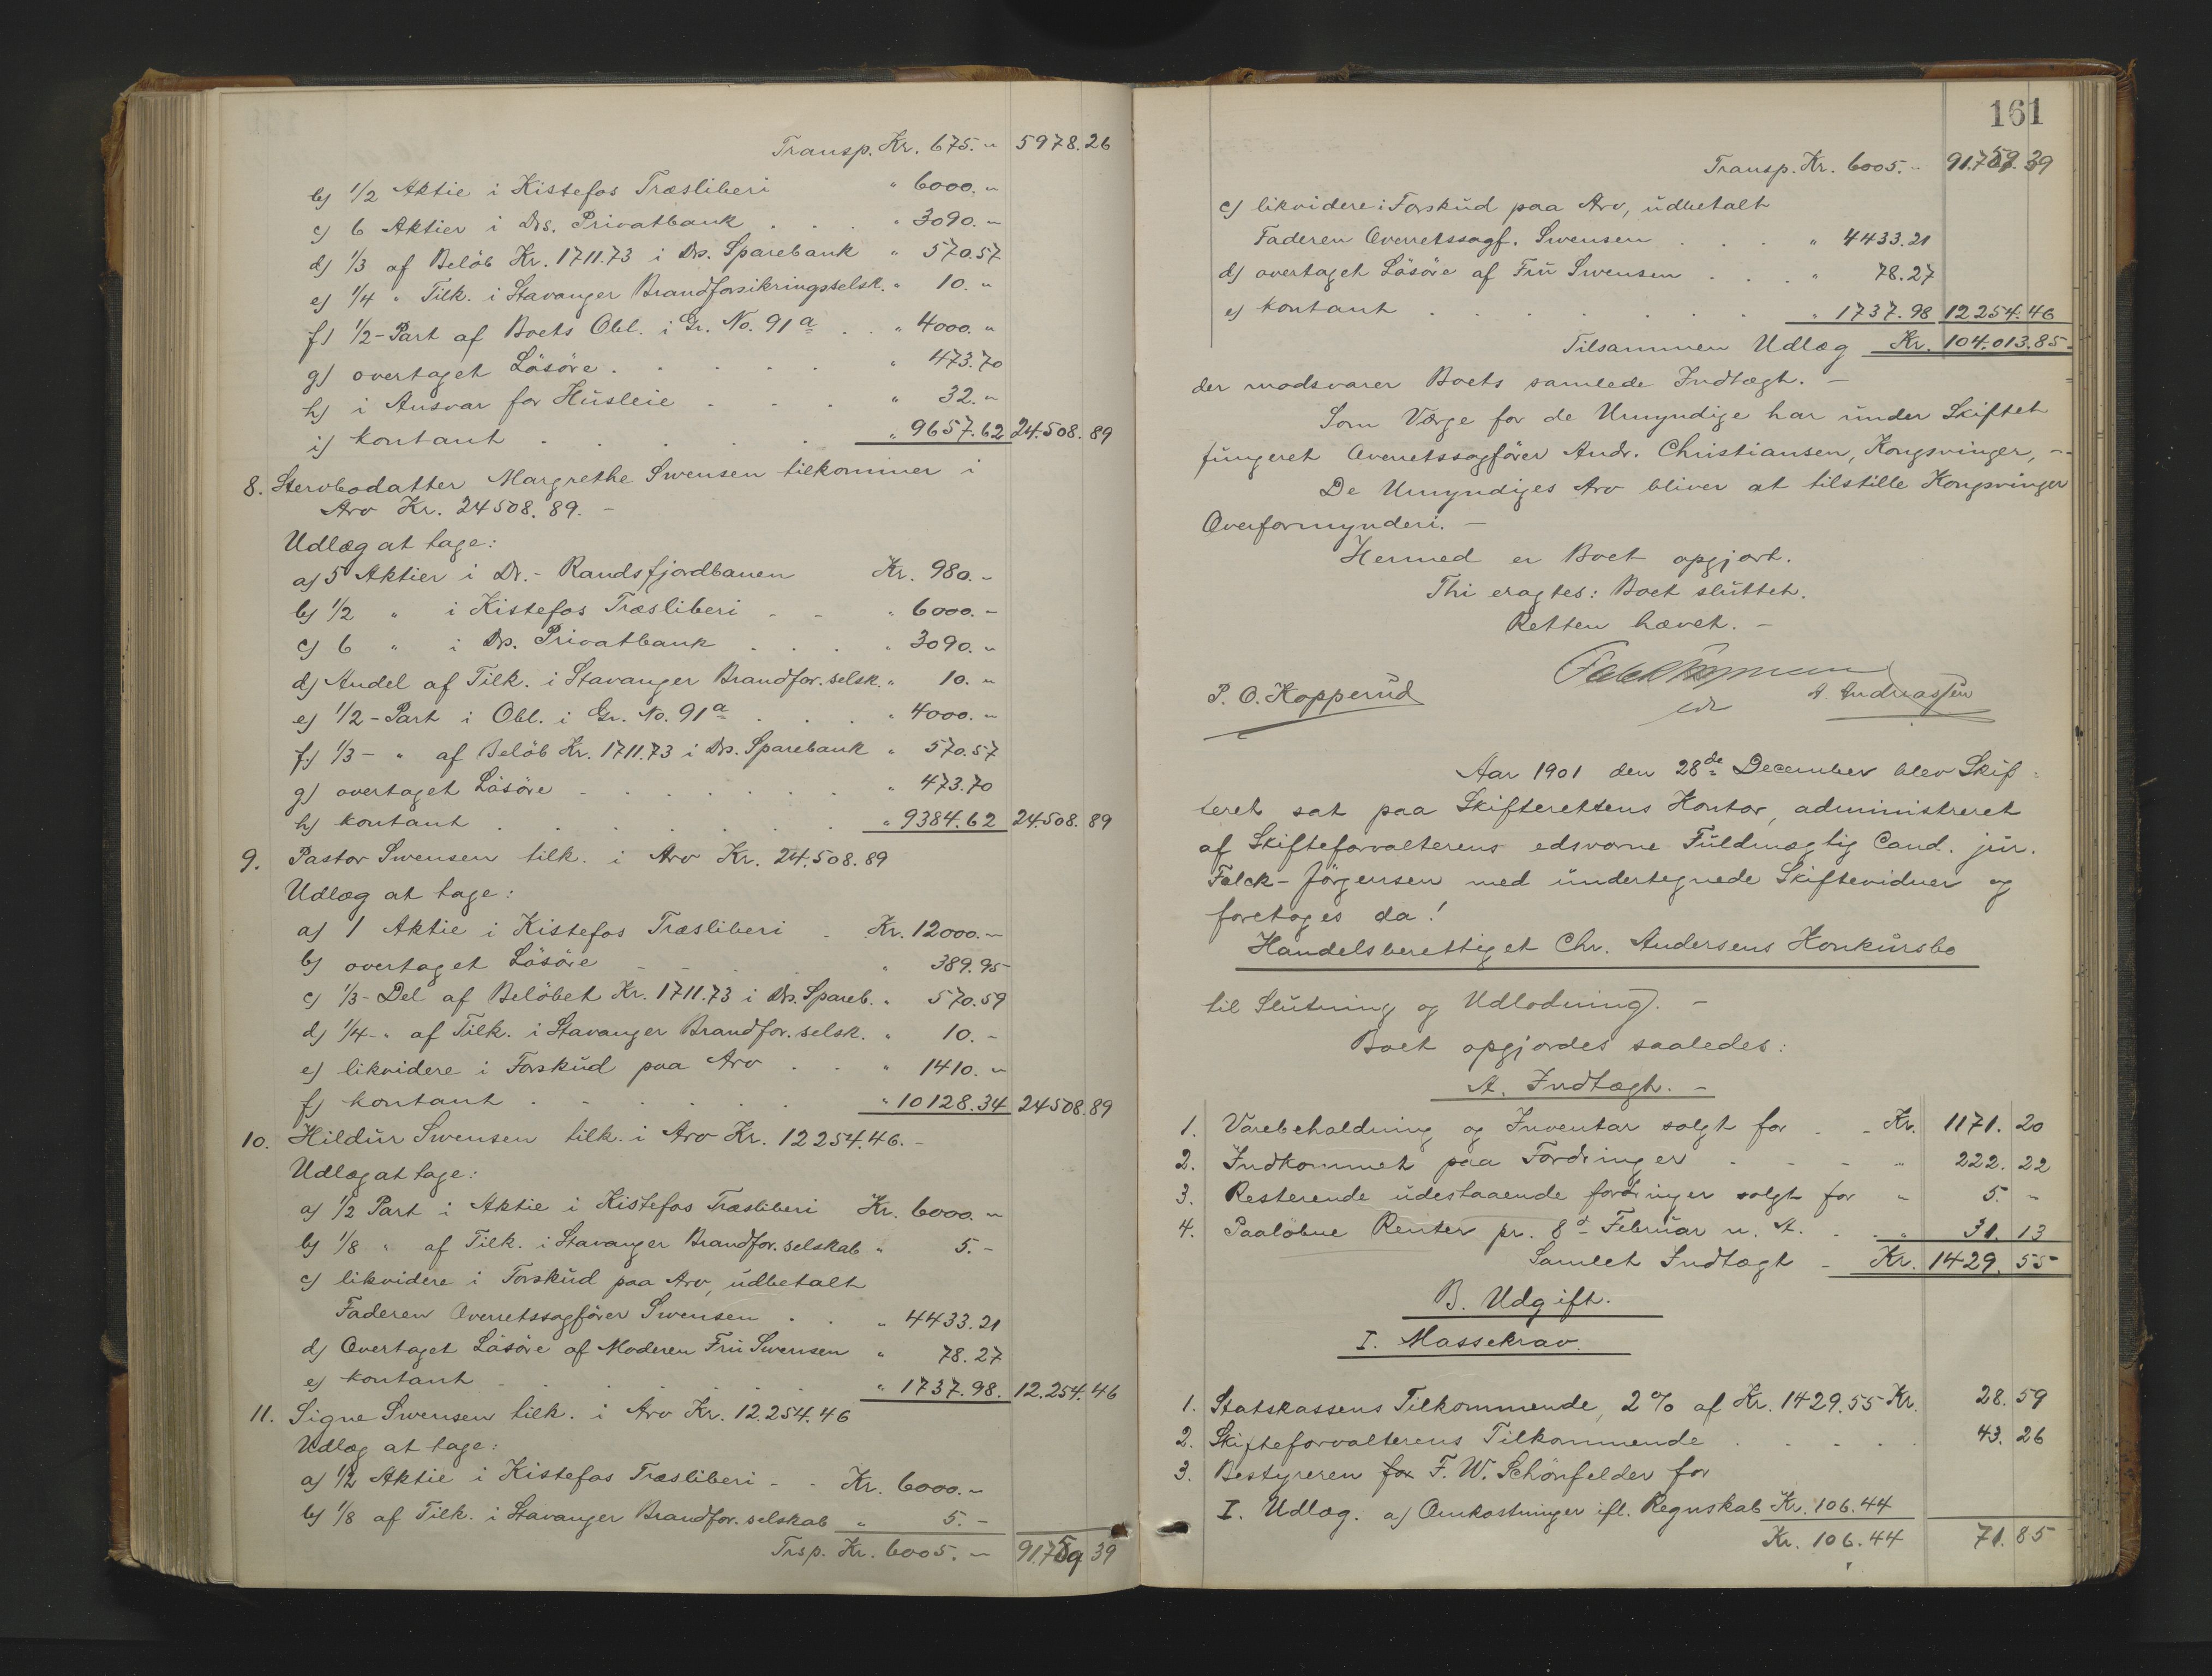 Transp. Kr. 675. " 5978.26
b) 1/2 Aktie i Kistefos Træsliberi " 6000. "
c) 6 Aktier i Drs. Privatbank . . . " 3090. "
d) 1/3 af Beløb Kr. 1711.73 i Drs. Sparebank " 570.57
e) 1/4 " Tilk. i Stavanger Brandforsikringsselsk. " 10. "
f) 1/2-Part af Boets Obl. i Gr. No. 91a . . " 4000. "
g) overtaget Løsøre . . . . . " 473.70
h) i Ansvar for Husleie . . . " 32. "
i) kontant . . . . . . " 9657.62 24.508.89
8. Stervbodatter Margrethe Swensen tilkommer i
Arv Kr. 24508.89. -
Udlæg at tage:
a) 5 Aktier i Dr.- Randsfjordbanen Kr. 980. -
b) 1/2 " i Kistefos Træsliberi - - " 6000. -
c) 6 " i Drs. Privatbank . . . . " 3090. "
d) Andel af Tilk. i Stavanger Brandfor.selsk. " 10. "
e) 1/2-Part i Obl. i Gr. No. 91a . . . " 4000. "
f) 1/3- " af Beløb Kr. 1711.73 i Drs. Sparebank " 570.57
g) overtaget Løsøre - . . . . . . " 473.70
h) kontant . . . . . . . . " 9384.62 24.508.89
9. Pastor Swensen tilk. i Arv Kr. 24.508.89
Udlæg at tage:
a) 1 Aktie i Kistefos Træsliberi - Kr. 12000. -
b) overtaget Løsøre - - . . " 389.95
c) 1/3-Del af Beløbet Kr. 1711.73 i Drs. Spareb. " 570.59
d) 1/4- " af Tilk. i Stavanger Brandfor.selsk. " 10. -
e) likvidere i Forskud paa Arv . . " 1410. "
f) kontant . - . . . . " 10128.34 24508.89
10. Hildur Swensen tilk. i Arv Kr. 12254.46. -
Udlæg at tage:
a) 1/2 Part i Aktie i Kistefos Træsliberi Kr. 6000. "
b) 1/8 " af Tilk. i Stavanger Brandfor.selskab " 5. -
c) likvidere i Forskud paa Arv, udbetalt
Faderen Overretssagfører Swensen . . " 4433.21
d) Overtaget Løsøre af Moderen Fru Swensen " 78.27
e) kontant - . . . . . . " 1737.98. 12.254.46
11. Signe Swensen tilk. i Arv Kr. 12.254.46
Udlæg at tage:
a) 1/2 Aktie i Kistefos Træsliberi - - Kr. 6000. -
b) 1/8 af Tilk. i Stavanger Brandfor.selskab " 5. -
Trsp. Kr. 6005. - 91.759 39
161
Transp. Kr. 6005. " 91.759.39
c) likvidere i Forskud paa Arv, udbetalt
Faderen Overretssagf. Swensen . . . " 4433.21
d) overtaget Løsøre af Fru Swensen . . . " 78.27
e) kontant . . . . . . . " 1737.98 12254.46
Tilsammen Udlæg Kr. 104.013.85
der modsvarer Boets samlede Indtægt. -
Som Værge for de Umyndige har under Skiftet
fungeret Overretssagfører Andr. Christiansen, Kongsvinger, -
De Umyndiges Arv bliver at tilstille Kongsvinger
Overformynderi. -
Hermed er Boet opgjort.
Thi eragtes: Boet sluttet.
Retten hævet. -
P. O. Kopperud A. Andreassen
Aar 1901 den 28de December blev Skif-
teret sat paa Skifterettens Kontor, administreret
af Skifteforvalterens edsvorne Fuldmægtig Cand. jur.
Falck-Jørgensen med undertegnede Skiftevidner og
foretoges da!
Handelsberettiget Chr. Andersens Konkursbo
til Slutning og Udlodning. -
Boet opgjordes saaledes:
A. Indtægt. -
1. Varebeholdning og Inventar solgt for . - Kr. 1171. 20
2. Indkommet paa Fordringer - - - " 222. 22
3. Resterende udestaaende fordringer solgt for " 5. -
4. Paaløbne Renter pr. 8d Februar n. A. . . " 31. 13
Samlet Indtægt - Kr. 1429. 55
B. Udgift.
I. Massekrav.
1. Statskassens Tilkommende, 2% af Kr. 1429.55 Kr. 28. 59
2. Skifteforvalterens Tilkommende . . . . . 43. 26
3. Bestyreren for F. W. Schønfelder for
I. Udlæg. a) Omkostninger ifl. Regnskab Kr. 106.44
Kr. 106.44 71.85